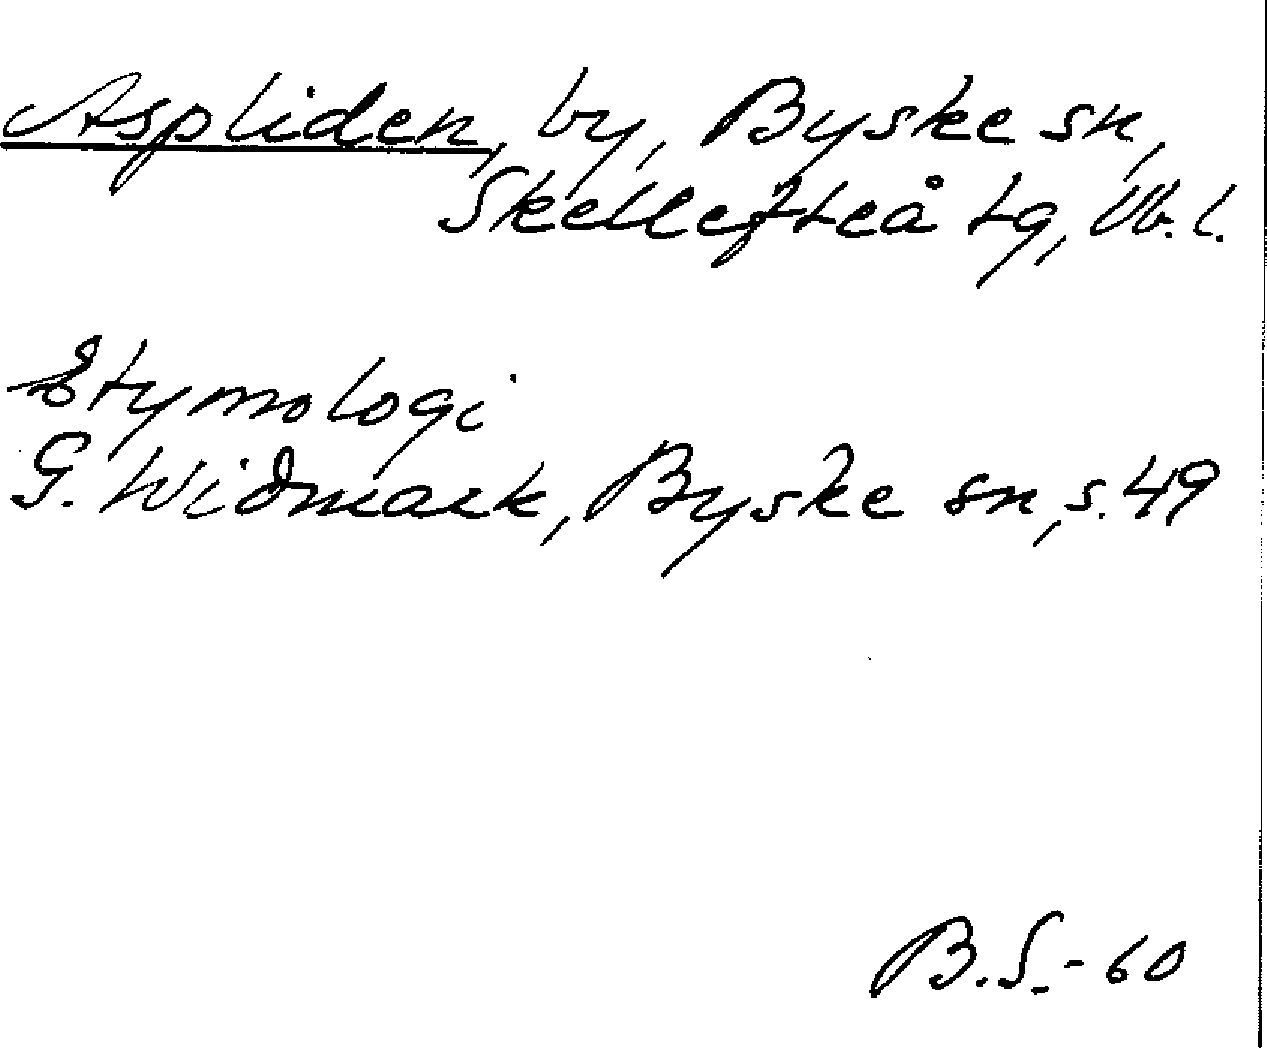 Aspliden, by, Byske sn,
Skellefteå tg, Vb.l.
Etymologi
G. Widmark, Byske sn, s. 49
B.S.-60